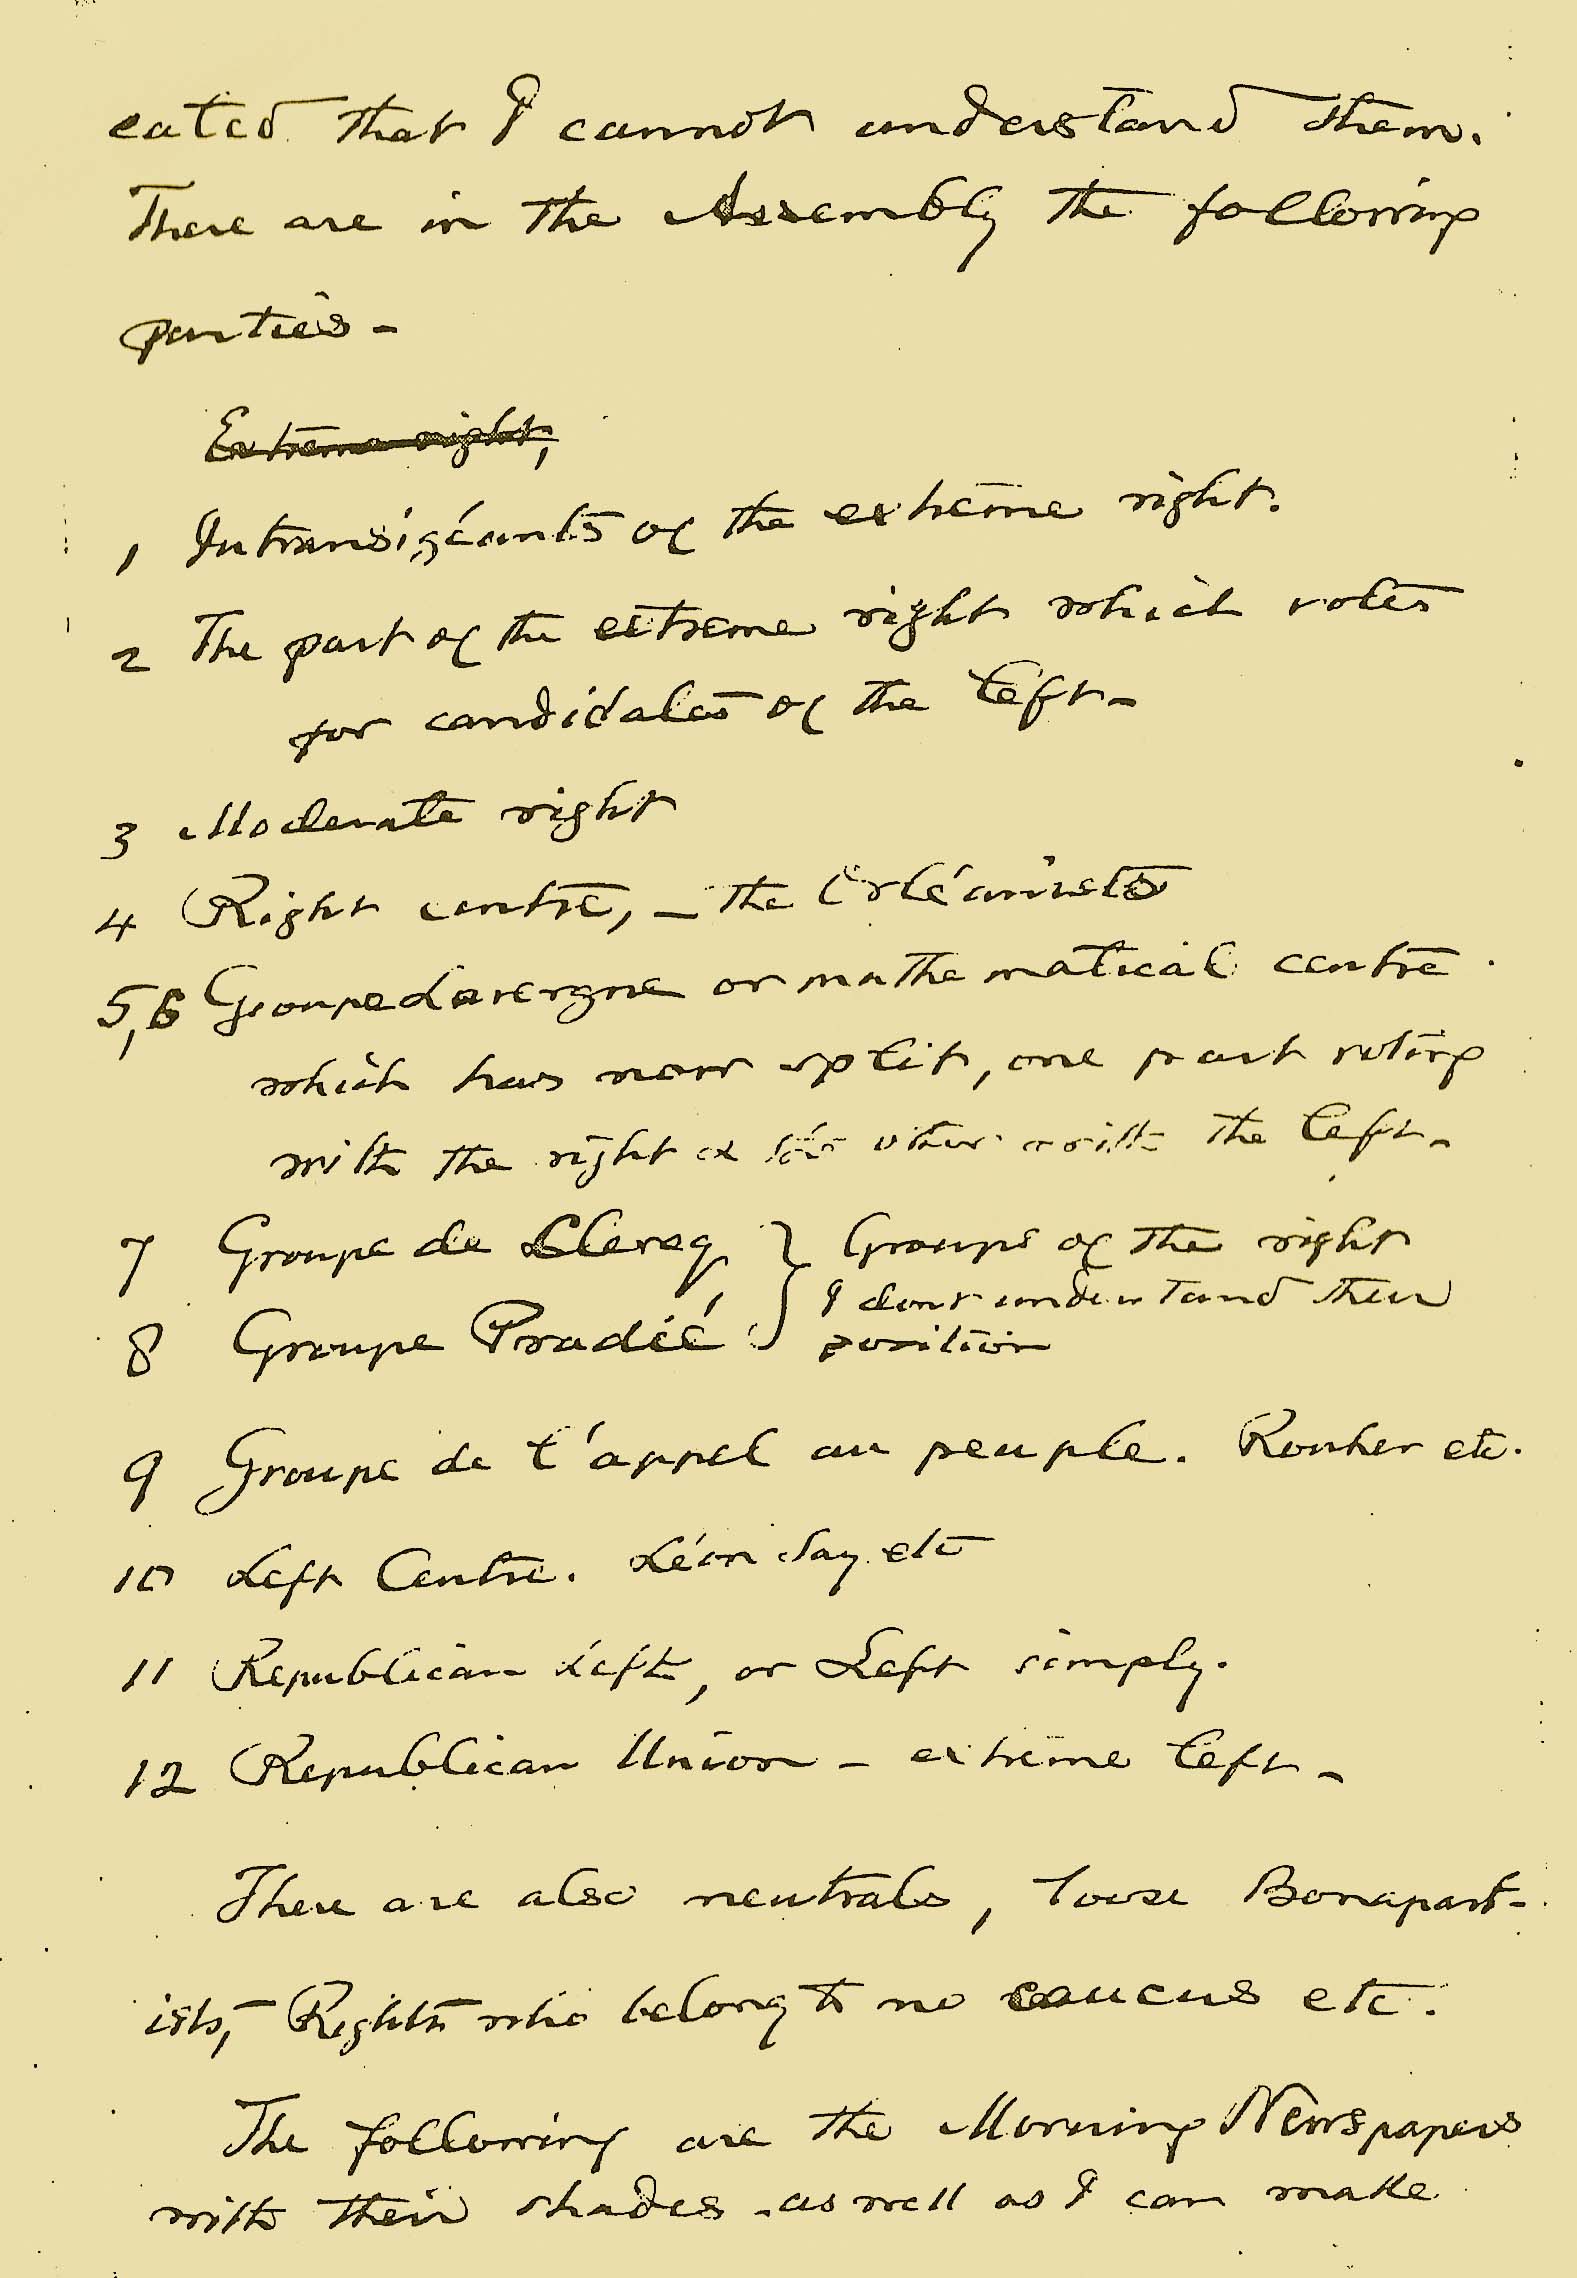 cated that I cannot understand them.
There are in the Assembly the following
parties –
Extreme right,
1 Intransigéants of the extreme right.
2 The part of the extreme right which votes
for candidates of the left –
3 Moderate right
4 Right centre, – the Orléanists
5,6 Groupe Lavergne or mathematical centre
which has now split, one part voting
with the right & the other with the left –
7 Groupe de Clercq } Groups of the right
I dont understand their
8 Groupe Pradié position
9 Groupe de l'appel au peuple. Rouher etc.
10 Left Centre. Léon Say etc
11 Republican Left, or Left simply.
12 Republican Union – extreme left –
There are also neutrals, loose Bonapart-
ists, – Rights who belong to no caucus etc.
The following are the Morning Newspapers
with their shades – as well as I can make